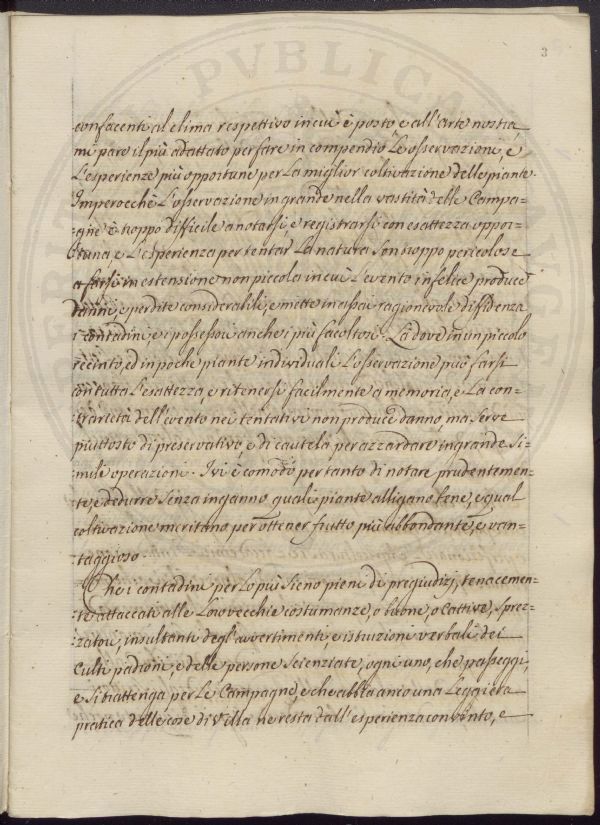 3
confacenti al clima respettivo in cui è posto, e all'arte nostra,
mi pare il più adattato per fare in compendio Le osservazioni, e
L'esperienze più opportune per La miglior coltivazione delle piante.
Imperocchè L'osservazione in grande nella vastità delle Campa=
=gne è troppo difficile a notarsi, e registrarsi con esattezza oppor=
=tuna, e L'esperienza per tentar La natura son troppo pericolose
a farsi in estensione non piccola in cui L'evento infelice produce
danni, e perdite considerabili, e mette in assai ragionevole diffidenza
i contadini, e i possessori anche i più facoltosi. Là dove in un piccolo
recinto, ed in poche piante individuali L'osservazione può farsi
con tutta L'esattezza, e ritenersi facilmente a memoria, e La con=
=trarietà dell'evento nei tentativi non produce danno, ma serve
piuttosto di preservativo, e di cautela per azzardare in grande si=
=mili operazioni. Ivi è comodo per tanto di notare prudentemen=
=te, e dedurre senza inganno quali piante allignano bene, e qual
coltivazione meritano per ottener frutto più abbondante, e van=
=taggioso.
Che i contadini per Lo più sieno pieni di pregiudizj, tenacemen=
=te attaccati alle Loro vecchie costumanze, o buone, o cattive, sprez=
zatori, insultanti degl'avvertimenti, e istruzioni verbali dei
Culti padroni, e delle persone scienziate, ogni uno, che passeggi,
e si trattenga per Le Campagne, e che abbia anco una Leggiera
pratica delle cose di Villa ne resta dall'esperienza convinto, e